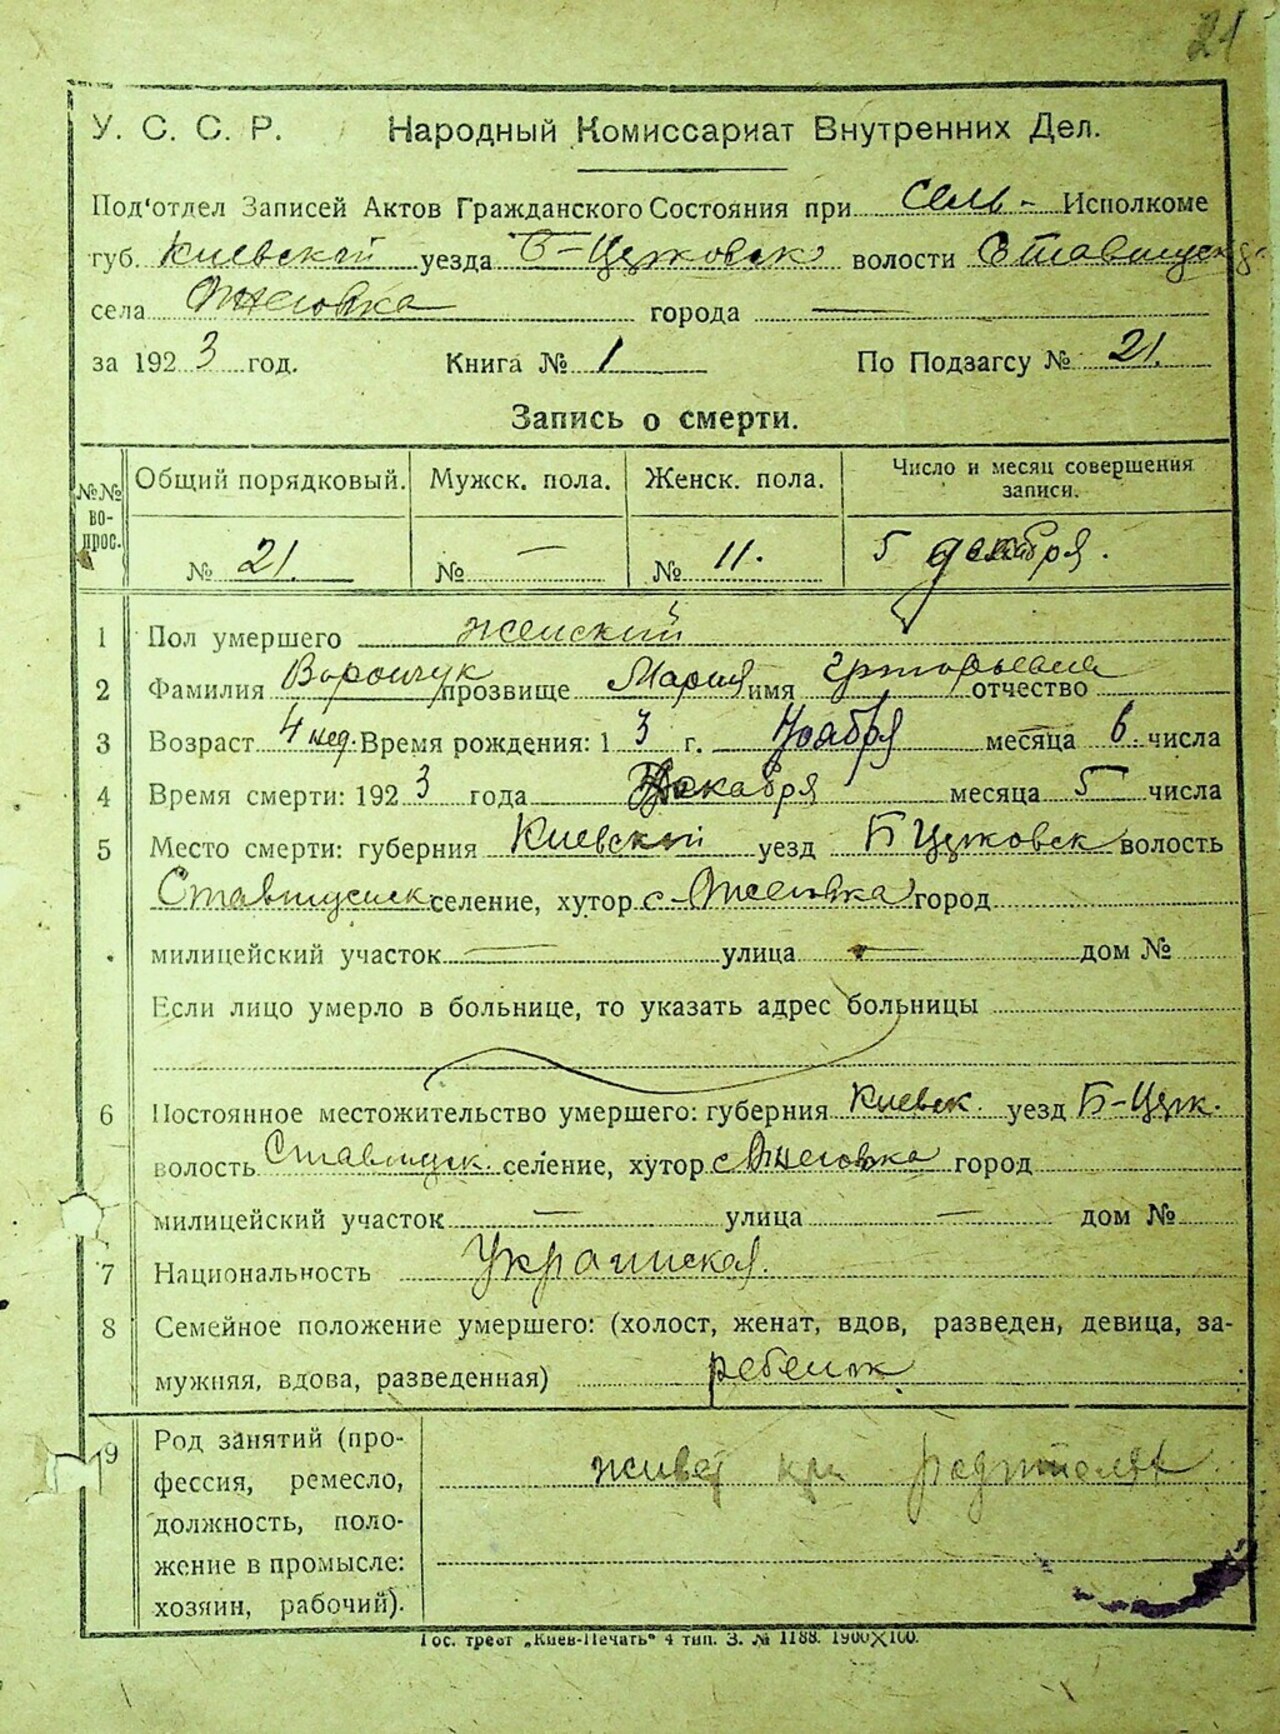 21
У. С. С. Р. Народный Комиссариат Внутренних Дел.
Под‘отдел Записей Актов Гражданского Состояния при Сель- Исполкоме
губ. Киевской уезда Б-Церковск волости Ставищенск
села города —
за 1923 год. Книга № 1 По Подзагсу № 21.
Запись о смерти.
№№ во- прос. Общий порядковый. Мужск. пола. Женск. пола. Число и месяц совершения записи.
№ 21. № — № 11. 5 декабря.
1 Пол умершего женский
2 Фамилия Ворончук прозвище Мария имя Григорьевна отчество
3 Возраст 4 нед. Время рождения: 1 3 г. Ноября месяца 6. числа
4 Время смерти: 1923 года Декабря месяца 5 числа
5 Место смерти: губерния Киевской уезд Б Церковск волость
Ставищенск селение, хутор с. город
милицейский участок — улица — дом №
Если лицо умерло в больнице, то указать адрес больницы
6 Постоянное местожительство умершего: губерния Киевск. уезд Б-Церк.
волость Ставищск. селение, хутор с город
милицейский участок — улица — дом №
7 Национальность Украинская.
8 Семейное положение умершего: (холост, женат, вдов, разведен, девица, за-
мужняя, вдова, разведенная) ребенок
9 Род занятий (про- живет при родителях.
фессия, ремесло,
должность, поло-
жение в промысле:
хозяин, рабочий).
Гос. трест „Киев-Печать“ 4 тип. З. № 1188. 1900X100.